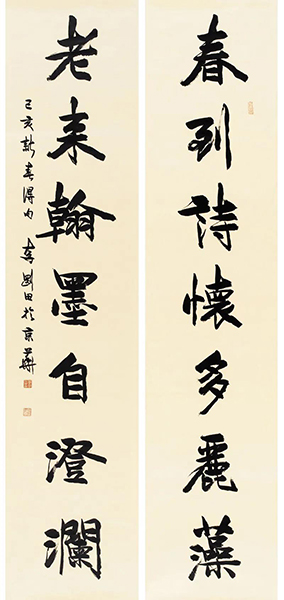 春到詩懷多麗藻
老来翰墨自澄瀾
己亥新春得句 李剛田於京華